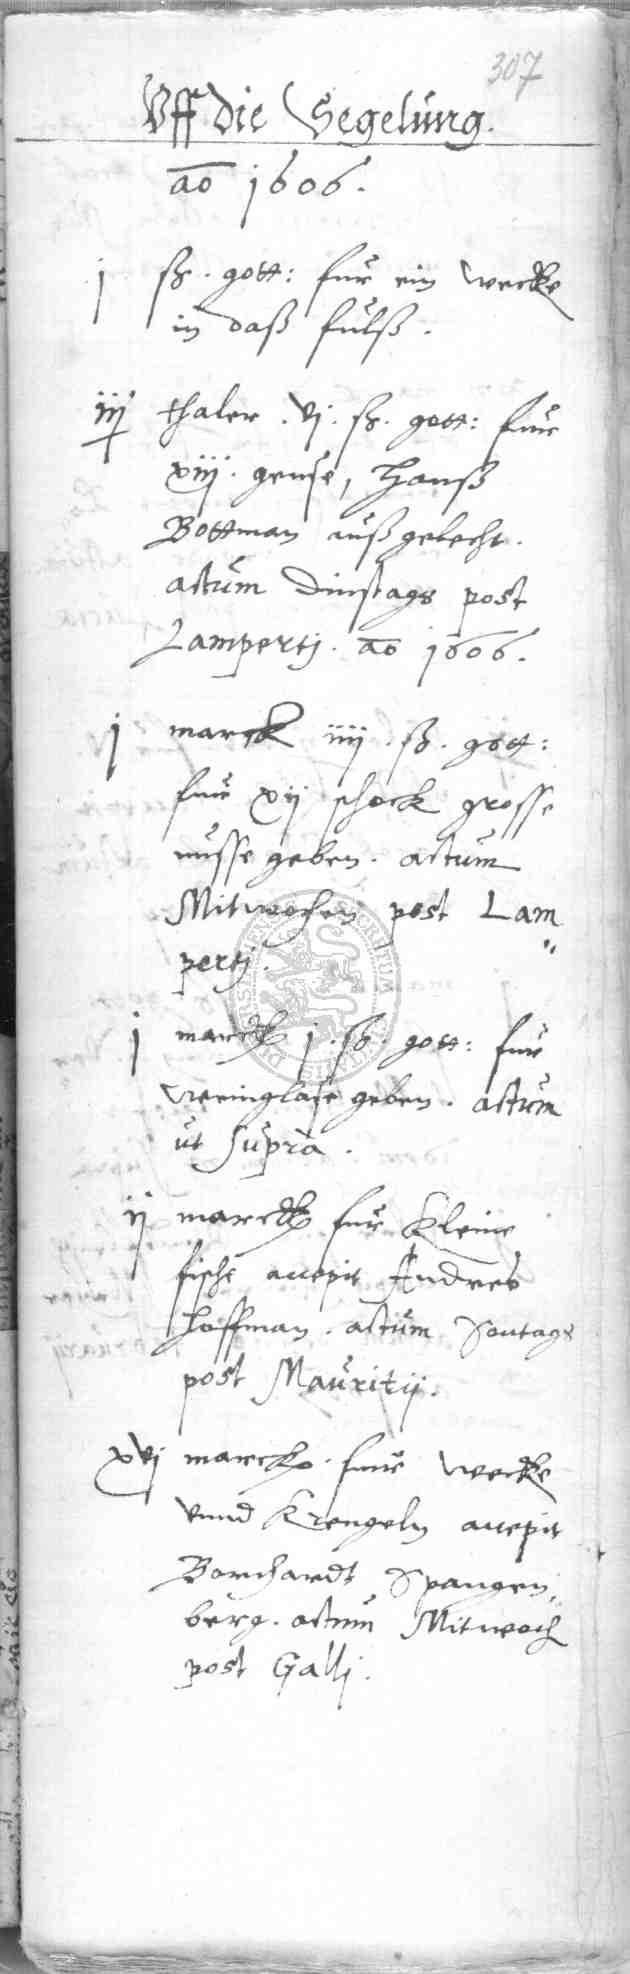 307
Uff die Segelung.
ao 1606.
j ß. gott: fur ein wecke
in daß fulß.
iij thaler. vj. ß. gott: fur
xiij. gense, Hanß
Bottman außgelecht.
actum Dinstags post
Lampertj. ao 1606.
j marck iiij. ß. gott:
fur xij schock grosse
nusse geben. actum
Mitwochen post Lam„
pertj.
j marck j. ß. gott: fur
weinglase geben. actum
ut supra.
ij marck fur kleine
fische accepit Andres
Hoffman. actum Sontags
post Mauritij.
xvj marck. fur wecke
unnd Krengeln accepit
Borchardt Spangen„
berg. actum Mitwoch
post Gallj.